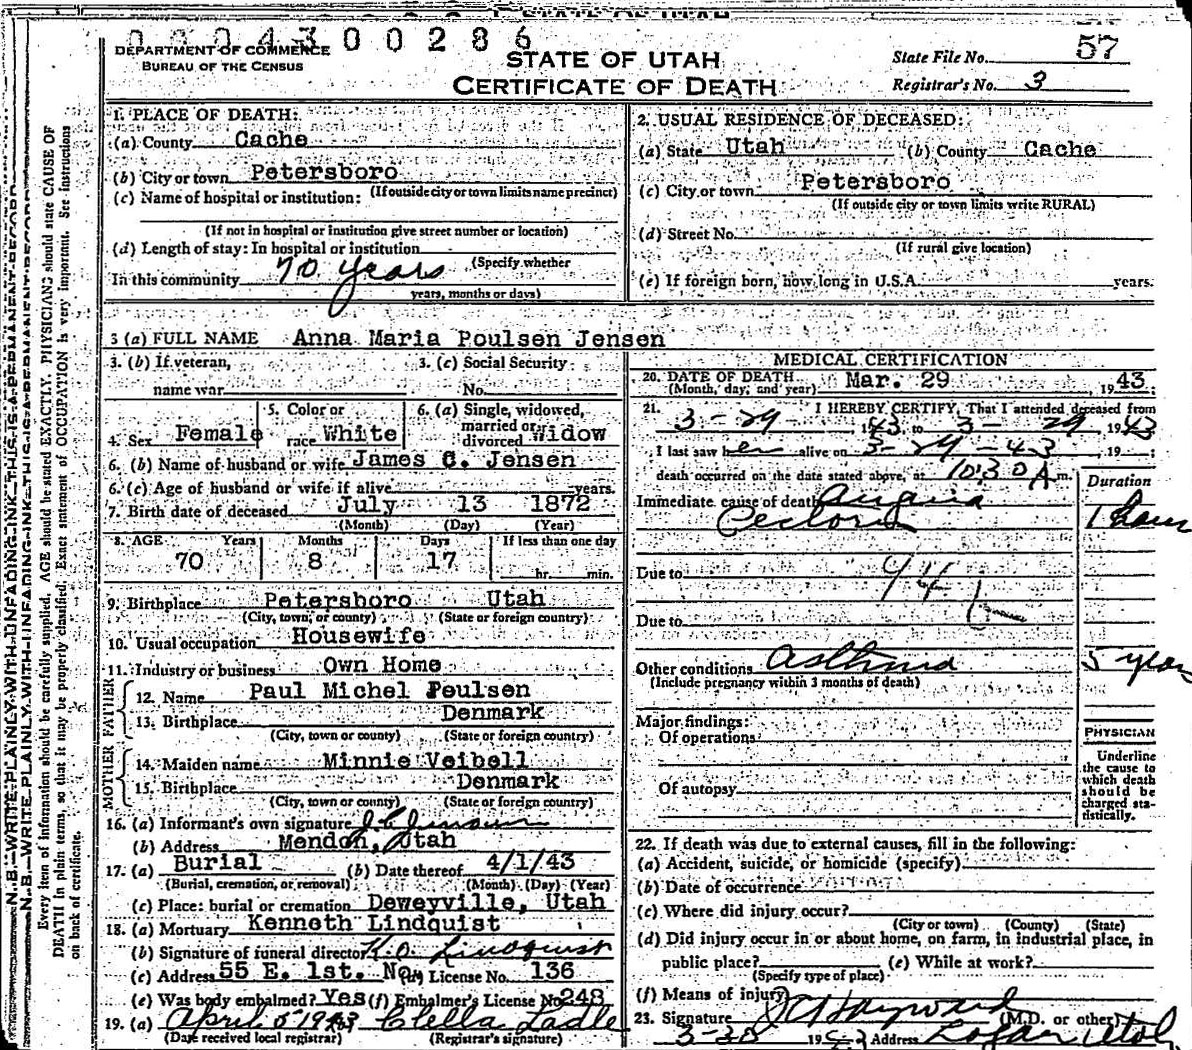 0 0 0 4 3 0 0 2 8 6
DEPARTMENT OF COMMERCE
BUREAU OF THE CENSUS
STATE OF UTAH
CERTIFICATE OF DEATH
State File No. 57
Registrar's No. 3
N.B.—WRITE PLAINLY WITH UNFADING INK—THIS IS A PERMANENT RECORD
Every item of information should be carefully supplied. AGE should be stated EXACTLY. PHYSICIANS should state CAUSE OF
DEATH in plain terms, so that it may be properly classified. Exact statement of OCCUPATION is very important. See instructions
on back of certificate.
1. PLACE OF DEATH:
(a) County Cache
(b) City or town Petersboro
(If outside city or town limits name precinct)
(c) Name of hospital or institution:
(If not in hospital or institution give street number or location)
(d) Length of stay: In hospital or institution
(Specify whether
In this community 70 years
years, months or days)
2. USUAL RESIDENCE OF DECEASED:
(a) State Utah (b) County Cache
(c) City or town Petersboro
(If outside city or town limits write RURAL)
(d) Street No.
(If rural give location)
(e) If foreign born, how long in U.S.A. years.
3 (a) FULL NAME Anna Maria Poulsen Jensen
3. (b) If veteran, name war
3. (c) Social Security No.
4. Sex Female
5. Color or race White
6. (a) Single, widowed, married or divorced Widow
6. (b) Name of husband or wife James C. Jensen
6. (c) Age of husband or wife if alive years.
7. Birth date of deceased July 13 1872
(Month) (Day) (Year)
8. AGE Years Months Days If less than one day
70 8 17 hr. min.
9. Birthplace Petersboro Utah
(City, town, or county) (State or foreign country)
10. Usual occupation Housewife
11. Industry or business Own Home
FATHER
12. Name Paul Michel Poulsen
13. Birthplace Denmark
(City, town or county) (State or foreign country)
MOTHER
14. Maiden name Minnie Veibell
15. Birthplace Denmark
(City, town or county) (State or foreign country)
16. (a) Informant's own signature
(b) Address Mendon, Utah
17. (a) Burial (b) Date thereof 4/1/43
(Burial, cremation, or removal) (Month) (Day) (Year)
(c) Place: burial or cremation Deweyville, Utah
18. (a) Mortuary Kenneth Lindquist
(b) Signature of funeral director K.O. Lindquist
(c) Address 55 E. 1st. No. License No. 136
(e) Was body embalmed? Yes (f) Embalmer's License No 248
19. (a) April 5 1943 Clella Ladle
(Date received local registrar) (Registrar's signature)
MEDICAL CERTIFICATION
20. DATE OF DEATH Mar. 29 1943
(Month, day, and year)
21. I HEREBY CERTIFY, That I attended deceased from
3-29 1943 to 3-29 1943
I last saw her alive on 3-29-43, 19
death occurred on the date stated above, at 10:30 A m.
Duration
Immediate cause of death Angina
Pectoris
1 hour
Due to 94
Due to
Other conditions Asthma 5 years
(Include pregnancy within 3 months of death)
Major findings:
Of operations
Of autopsy
PHYSICIAN
Underline
the cause to
which death
should be
charged sta-
tistically.
22. If death was due to external causes, fill in the following:
(a) Accident, suicide, or homicide (specify)
(b) Date of occurrence
(c) Where did injury occur?
(City or town) (County) (State)
(d) Did injury occur in or about home, on farm, in industrial place, in
public place? (e) While at work?
(Specify type of place)
(f) Means of injury
23. Signature Hayward (M.D. or other)
3-30 1943 Address Logan Utah